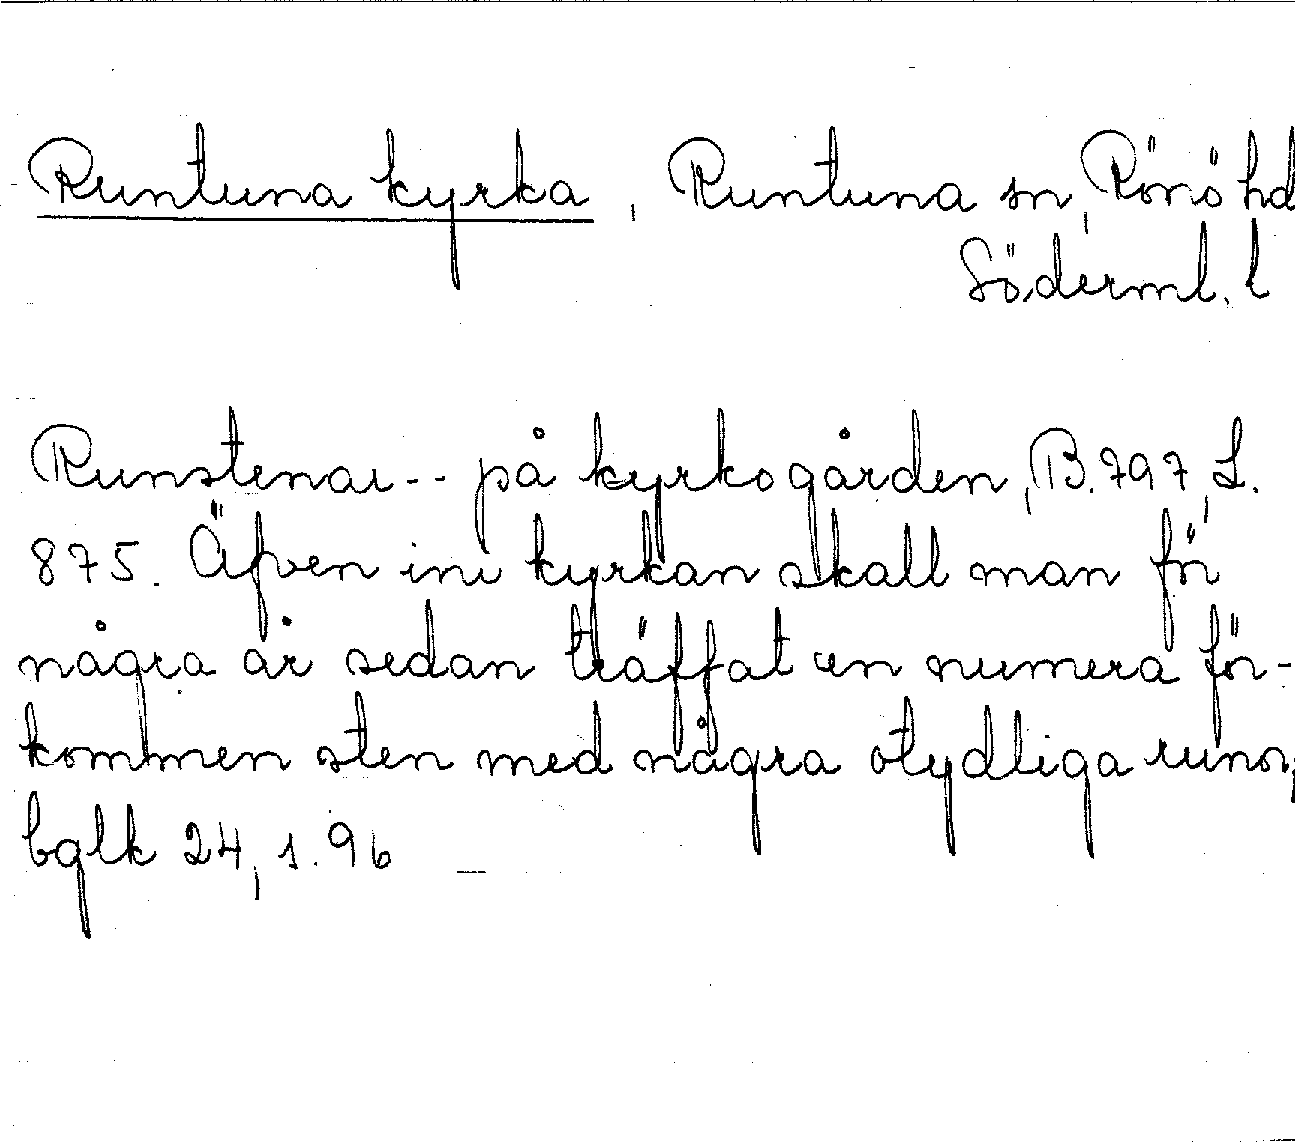 Runtuna kyrka, Runtuna sn, Rönö hd
Söderml. l
Runstenar -- på kyrkogården, B. 797, L.
875. Äfven ini kyrkan skall man för
några år sedan träffat en numera för-
kommen sten med några otydliga runor,
bglk 24, s. 96